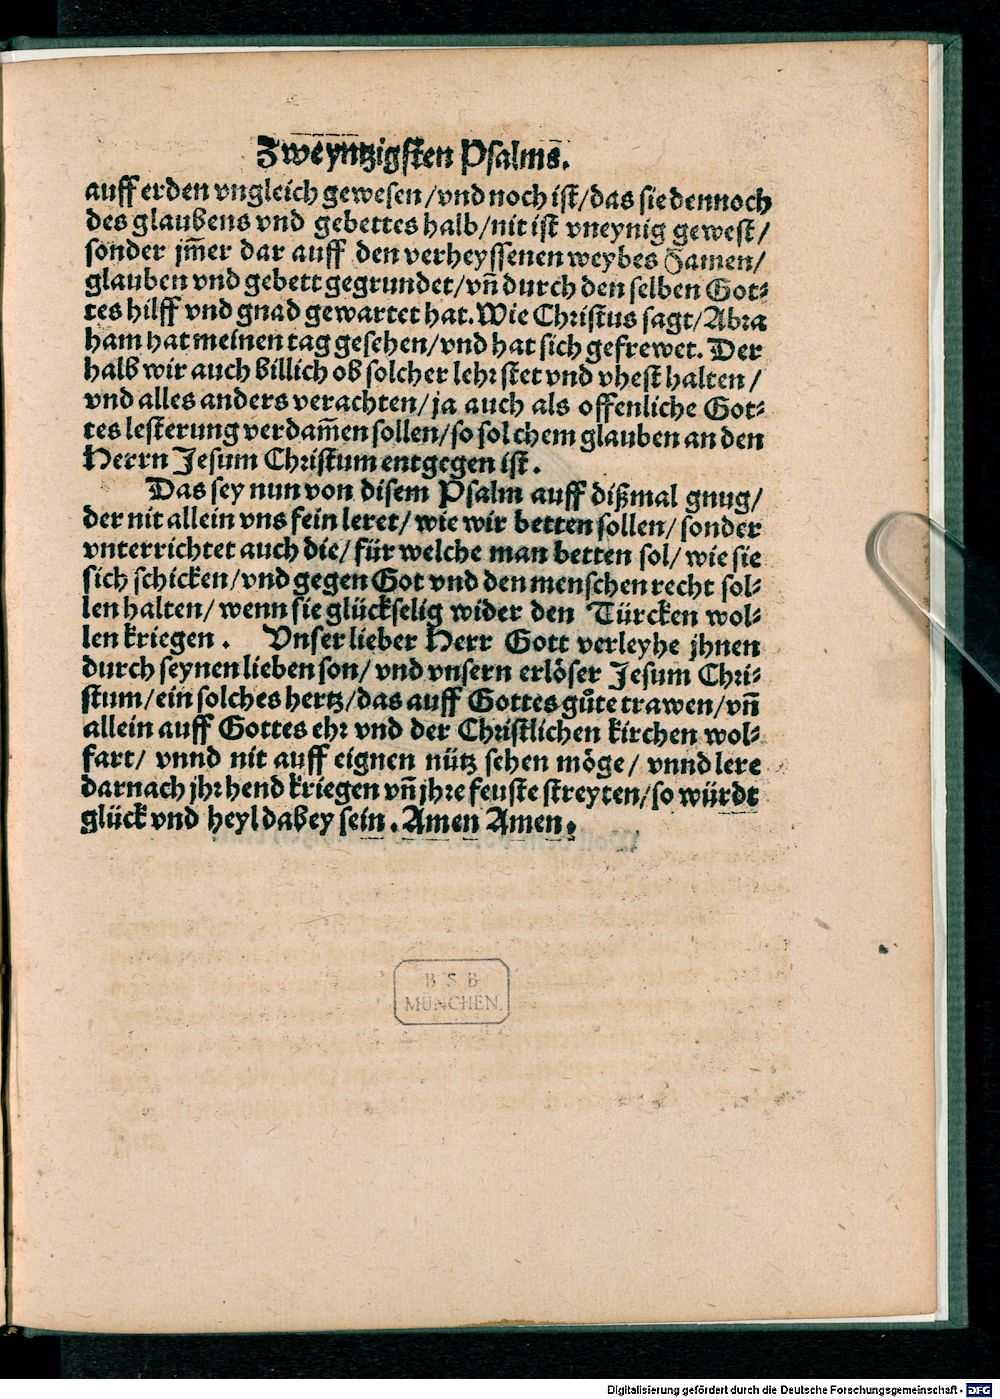 Zweyntzigsten Psalms.
auff erden vngleich gewesen/vnd noch ist/das sie dennoch
des glaubens vnd gebettes halb/nit ist vneynig gewest/
sonder jm̃er dar auff den verheyssenen weybes Samen/
glauben vnd gebett gegrundet/vñ durch den selben Got⸗
tes hilff vnd gnad gewartet hat. Wie Christus sagt/Abra
ham hat meinen tag gesehen/vnd hat sich gefrewet. Der
halb wir auch billich ob solcher lehr stet vnd vhest halten/
vnd alles anders verachten/ja auch als offenliche Got⸗
tes lesterung verdam̃en sollen/so solchem glauben an den
Herrn Jesum Christum entgegen ist.
Das sey nun von disem Psalm auff dißmal gnug/
der nit allein vns fein leret/wie wir betten sollen/sonder
vnterrichtet auch die/für welche man betten sol/wie sie
sich schicken/vnd gegen Got vnd den menschen recht sol⸗
len halten/wenn sie glückselig wider den Türcken wol⸗
len kriegen. Vnser lieber Herr Gott verleyhe jhnen
durch seynen lieben son/vnd vnsern erlöser Jesum Chri⸗
stum/ein solches hertz/das auff Gottes gůte trawen/vñ
allein auff Gottes ehr vnd der Christlichen kirchen wol⸗
fart/vnnd nit auff eignen nütz sehen möge/vnnd lere
darnach jhr hend kriegen vñ jhre feuste streyten/so würdt
glück vnd heyl dabey sein. Amen Amen.
B S B
MÜNCHEN
Digitalisierung gefördert durch die Deutsche Forschungsgemeinschaft - DFG